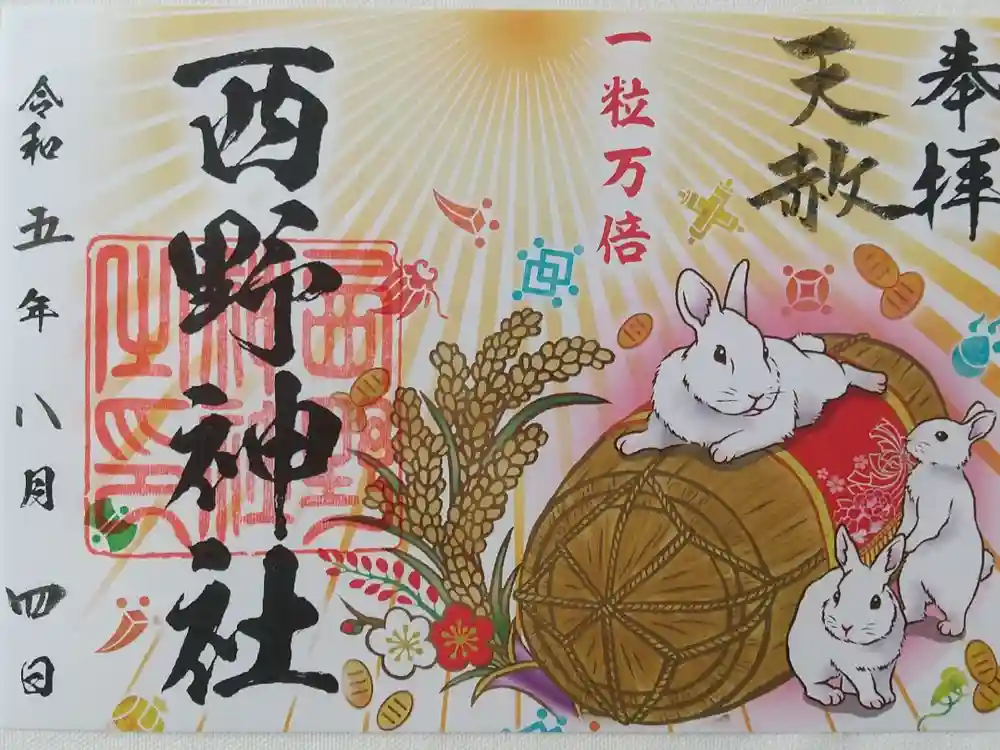 奉拝
天赦
一粒万倍
西野神社
令和五年八月四日